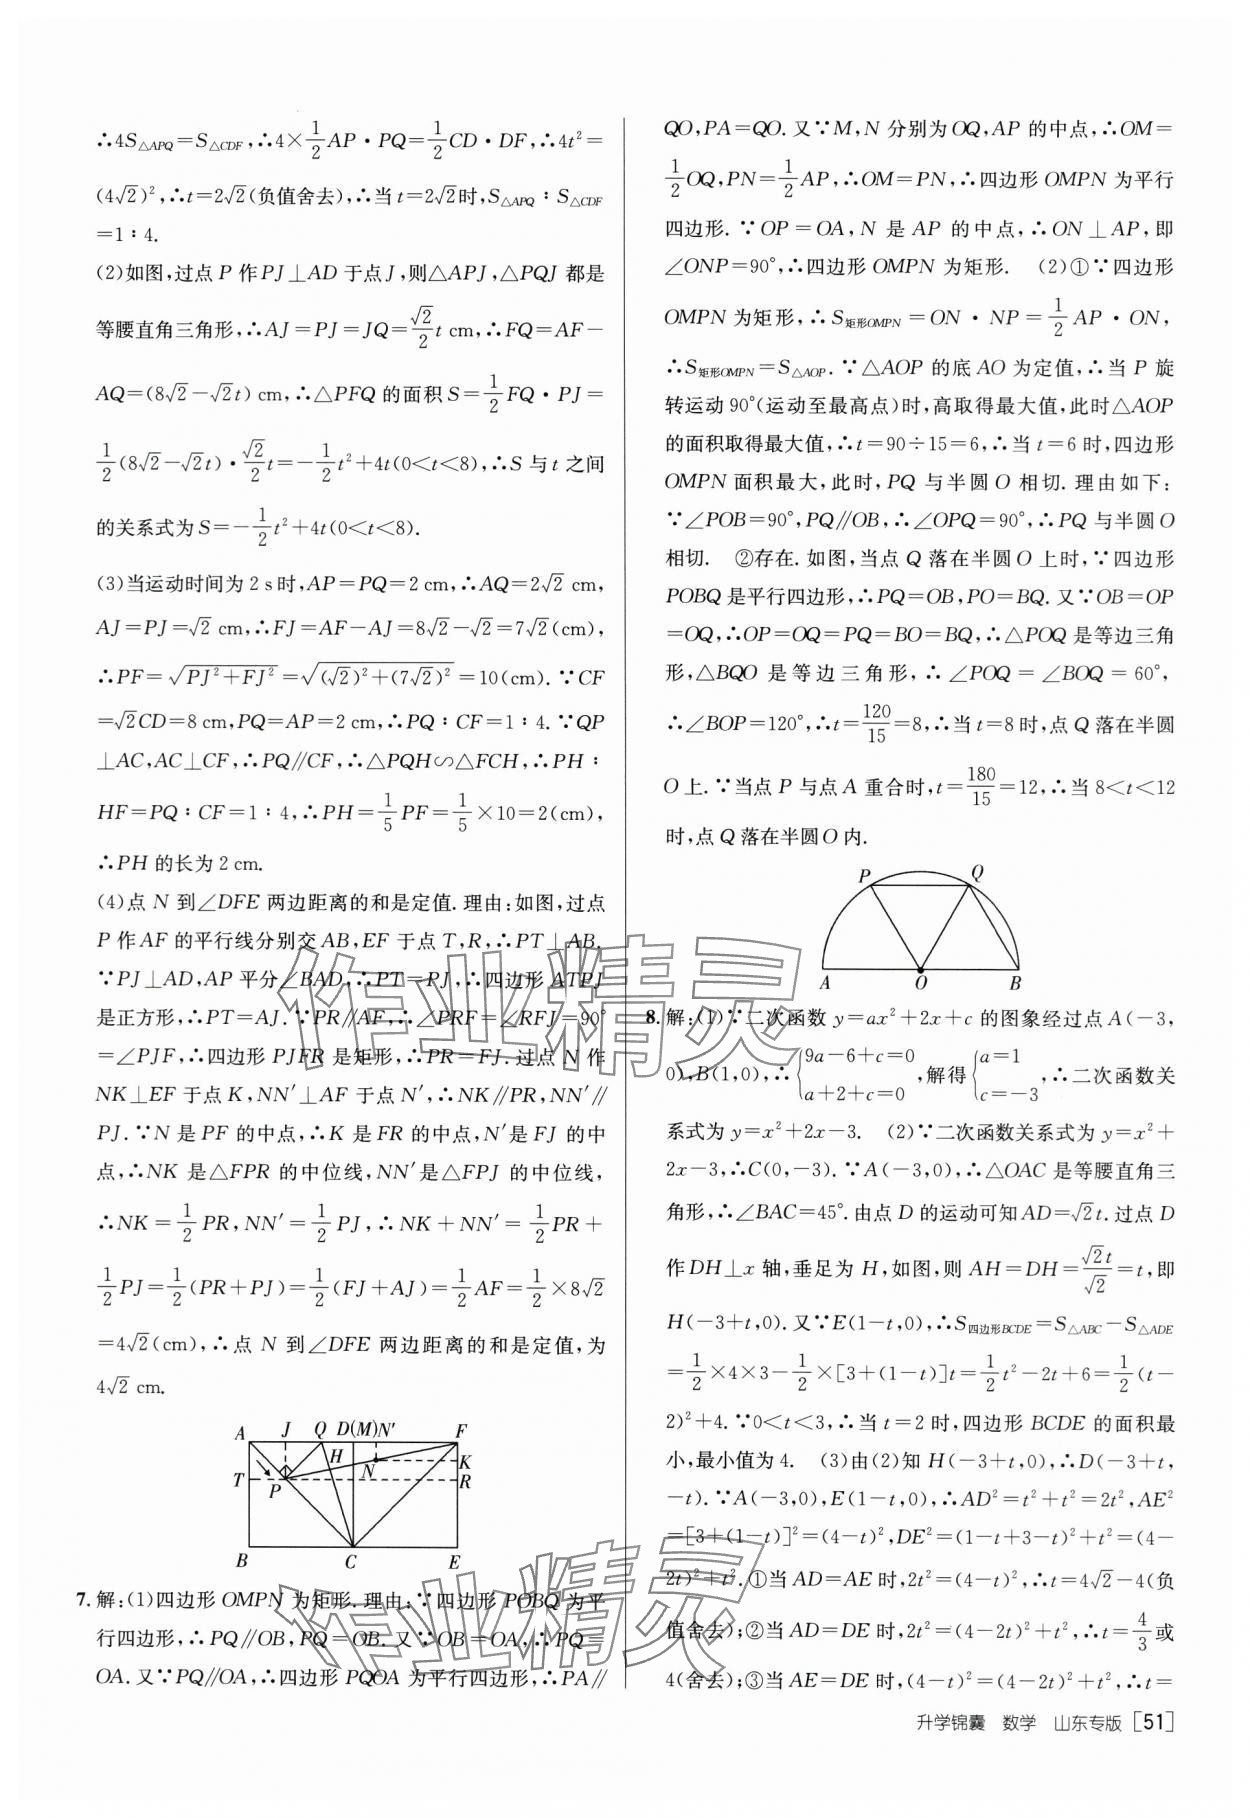 ∴4S△APQ=S△CDF,∴4×1/2AP·PQ=1/2CD·DF,∴4t²=
(4√2)²,∴t=2√2(负值舍去),∴当t=2√2时,S△APQ∶S△CDF
=1∶4.
(2)如图,过点P作PJ⊥AD于点J,则△APJ,△PQJ都是
等腰直角三角形,∴AJ=PJ=JQ=√2/2 t cm,∴FQ=AF-
AQ=(8√2-√2t) cm,∴△PFQ的面积S=1/2FQ·PJ=
1/2(8√2-√2t)·√2/2 t=-1/2t²+4t(0<t<8),∴S与t之间
的关系式为S=-1/2t²+4t(0<t<8).
(3)当运动时间为2 s时,AP=PQ=2 cm,∴AQ=2√2 cm,
AJ=PJ=√2 cm,∴FJ=AF-AJ=8√2-√2=7√2(cm),
∴PF=√(PJ²+FJ²)=√((√2)²+(7√2)²)=10(cm).∵CF
=√2CD=8 cm,PQ=AP=2 cm,∴PQ∶CF=1∶4.∵QP
⊥AC,AC⊥CF,∴PQ∥CF,∴△PQH∽△FCH,∴PH∶
HF=PQ∶CF=1∶4,∴PH=1/5PF=1/5×10=2(cm),
∴PH的长为2 cm.
(4)点N到∠DFE两边距离的和是定值.理由:如图,过点
P作AF的平行线分别交AB,EF于点T,R,∴PT⊥AB.
∵PJ⊥AD,AP平分∠BAD,∴PT=PJ,∴四边形ATPJ
是正方形,∴PT=AJ.∵PR∥AF,∴∠PRF=∠RFJ=90°
=∠PJF,∴四边形PJFR是矩形,∴PR=FJ.过点N作
NK⊥EF于点K,NN′⊥AF于点N′,∴NK∥PR,NN′∥
PJ.∵N是PF的中点,∴K是FR的中点,N′是FJ的中
点,∴NK是△FPR的中位线,NN′是△FPJ的中位线,
∴NK=1/2PR,NN′=1/2PJ,∴NK+NN′=1/2PR+
1/2PJ=1/2(PR+PJ)=1/2(FJ+AJ)=1/2AF=1/2×8√2
=4√2(cm),∴点N到∠DFE两边距离的和是定值,为
4√2 cm.
A J Q D(M)N′ F
H
N K
T P R
B C E
7.解:(1)四边形OMPN为矩形.理由:∵四边形POBQ为平
行四边形,∴PQ∥OB,PQ=OB.又∵OB=OA,∴PQ=
OA.又∵PQ∥OA,∴四边形PQOA为平行四边形,∴PA∥
QO,PA=QO.又∵M,N分别为OQ,AP的中点,∴OM=
1/2OQ,PN=1/2AP,∴OM=PN,∴四边形OMPN为平行
四边形.∵OP=OA,N是AP的中点,∴ON⊥AP,即
∠ONP=90°,∴四边形OMPN为矩形. (2)①∵四边形
OMPN为矩形,∴S矩形OMPN=ON·NP=1/2AP·ON,
∴S矩形OMPN=S△AOP.∵△AOP的底AO为定值,∴当P旋
转运动90°(运动至最高点)时,高取得最大值,此时△AOP
的面积取得最大值,∴t=90÷15=6,∴当t=6时,四边形
OMPN面积最大,此时,PQ与半圆O相切.理由如下:
∵∠POB=90°,PQ∥OB,∴∠OPQ=90°,∴PQ与半圆O
相切. ②存在.如图,当点Q落在半圆O上时,∵四边形
POBQ是平行四边形,∴PQ=OB,PO=BQ.又∵OB=OP
=OQ,∴OP=OQ=PQ=BO=BQ,∴△POQ是等边三角
形,△BQO是等边三角形,∴∠POQ=∠BOQ=60°,
∴∠BOP=120°,∴t=120/15=8,∴当t=8时,点Q落在半圆
O上.∵当点P与点A重合时,t=180/15=12,∴当8<t<12
时,点Q落在半圆O内.
P Q
A O B
8.解:(1)∵二次函数y=ax²+2x+c的图象经过点A(-3,
0),B(1,0),∴{9a-6+c=0 a+2+c=0,解得{a=1 c=-3,∴二次函数关
系式为y=x²+2x-3. (2)∵二次函数关系式为y=x²+
2x-3,∴C(0,-3).∵A(-3,0),∴△OAC是等腰直角三
角形,∴∠BAC=45°.由点D的运动可知AD=√2t.过点D
作DH⊥x轴,垂足为H,如图,则AH=DH=√2t/√2=t,即
H(-3+t,0).又∵E(1-t,0),∴S四边形BCDE=S△ABC-S△ADE
=1/2×4×3-1/2×[3+(1-t)]t=1/2t²-2t+6=1/2(t-
2)²+4.∵0<t<3,∴当t=2时,四边形BCDE的面积最
小,最小值为4. (3)由(2)知H(-3+t,0),∴D(-3+t,
-t).∵A(-3,0),E(1-t,0),∴AD²=t²+t²=2t²,AE²
=[3+(1-t)]²=(4-t)²,DE²=(1-t+3-t)²+t²=(4-
2t)²+t².①当AD=AE时,2t²=(4-t)²,∴t=4√2-4(负
值舍去);②当AD=DE时,2t²=(4-2t)²+t²,∴t=4/3或
4(舍去);③当AE=DE时,(4-t)²=(4-2t)²+t²,∴t=
升学锦囊 数学 山东专版[51]
作业精灵
作业精灵